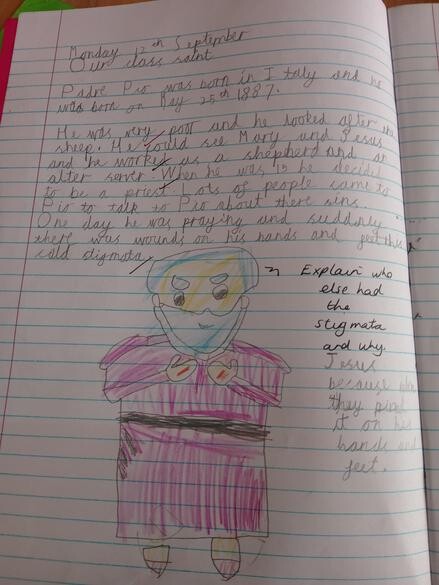 Monday 12th September
Our class saint
Padre Pio was born in Italy and he
was born on May 25th 1887.
He was very poor and he looked after the
sheep. He could see Mary and Jesus
and he worked as a shepherd and an
alter server. When he was 15 he decided
to be a priest. Lots of people came to
Pio to talk to Pio about there sins.
One day he was praying and suddenly
there was wounds on his hands and feet this
cald stigmata.
Explain who
else had
the
stigmata
and why.
Jesus
because
they
it on his
hands and
feet.